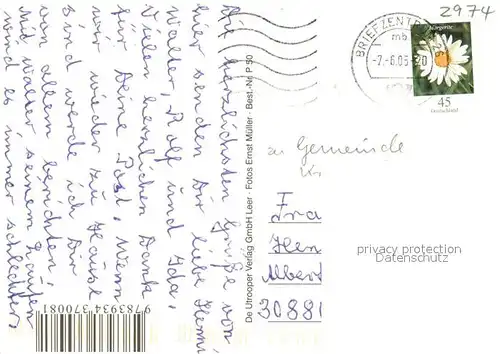 Die herzlichsten Grüße von
hier senden Dir, liebe Henni
Walter, Rolf und Ida.
Vielen herzlichen Dank
für Deine Post. Wenn
wir wieder zu Hause
sind werde ich Dir
von allem berichten,
Mit Walter seinem Laufen
wird es immer schlechter.
9783934370081
De Utrooper Verlag GmbH Leer · Fotos Ernst Müller · Best.-Nr. P 50
BRIEFZENTR
mb
-7.-6.05-20
26
Margerite
45
Deutschland
2974
zu Gemeinde
Fra
Hen
Albert
30881
privacy protection
Datenschutz